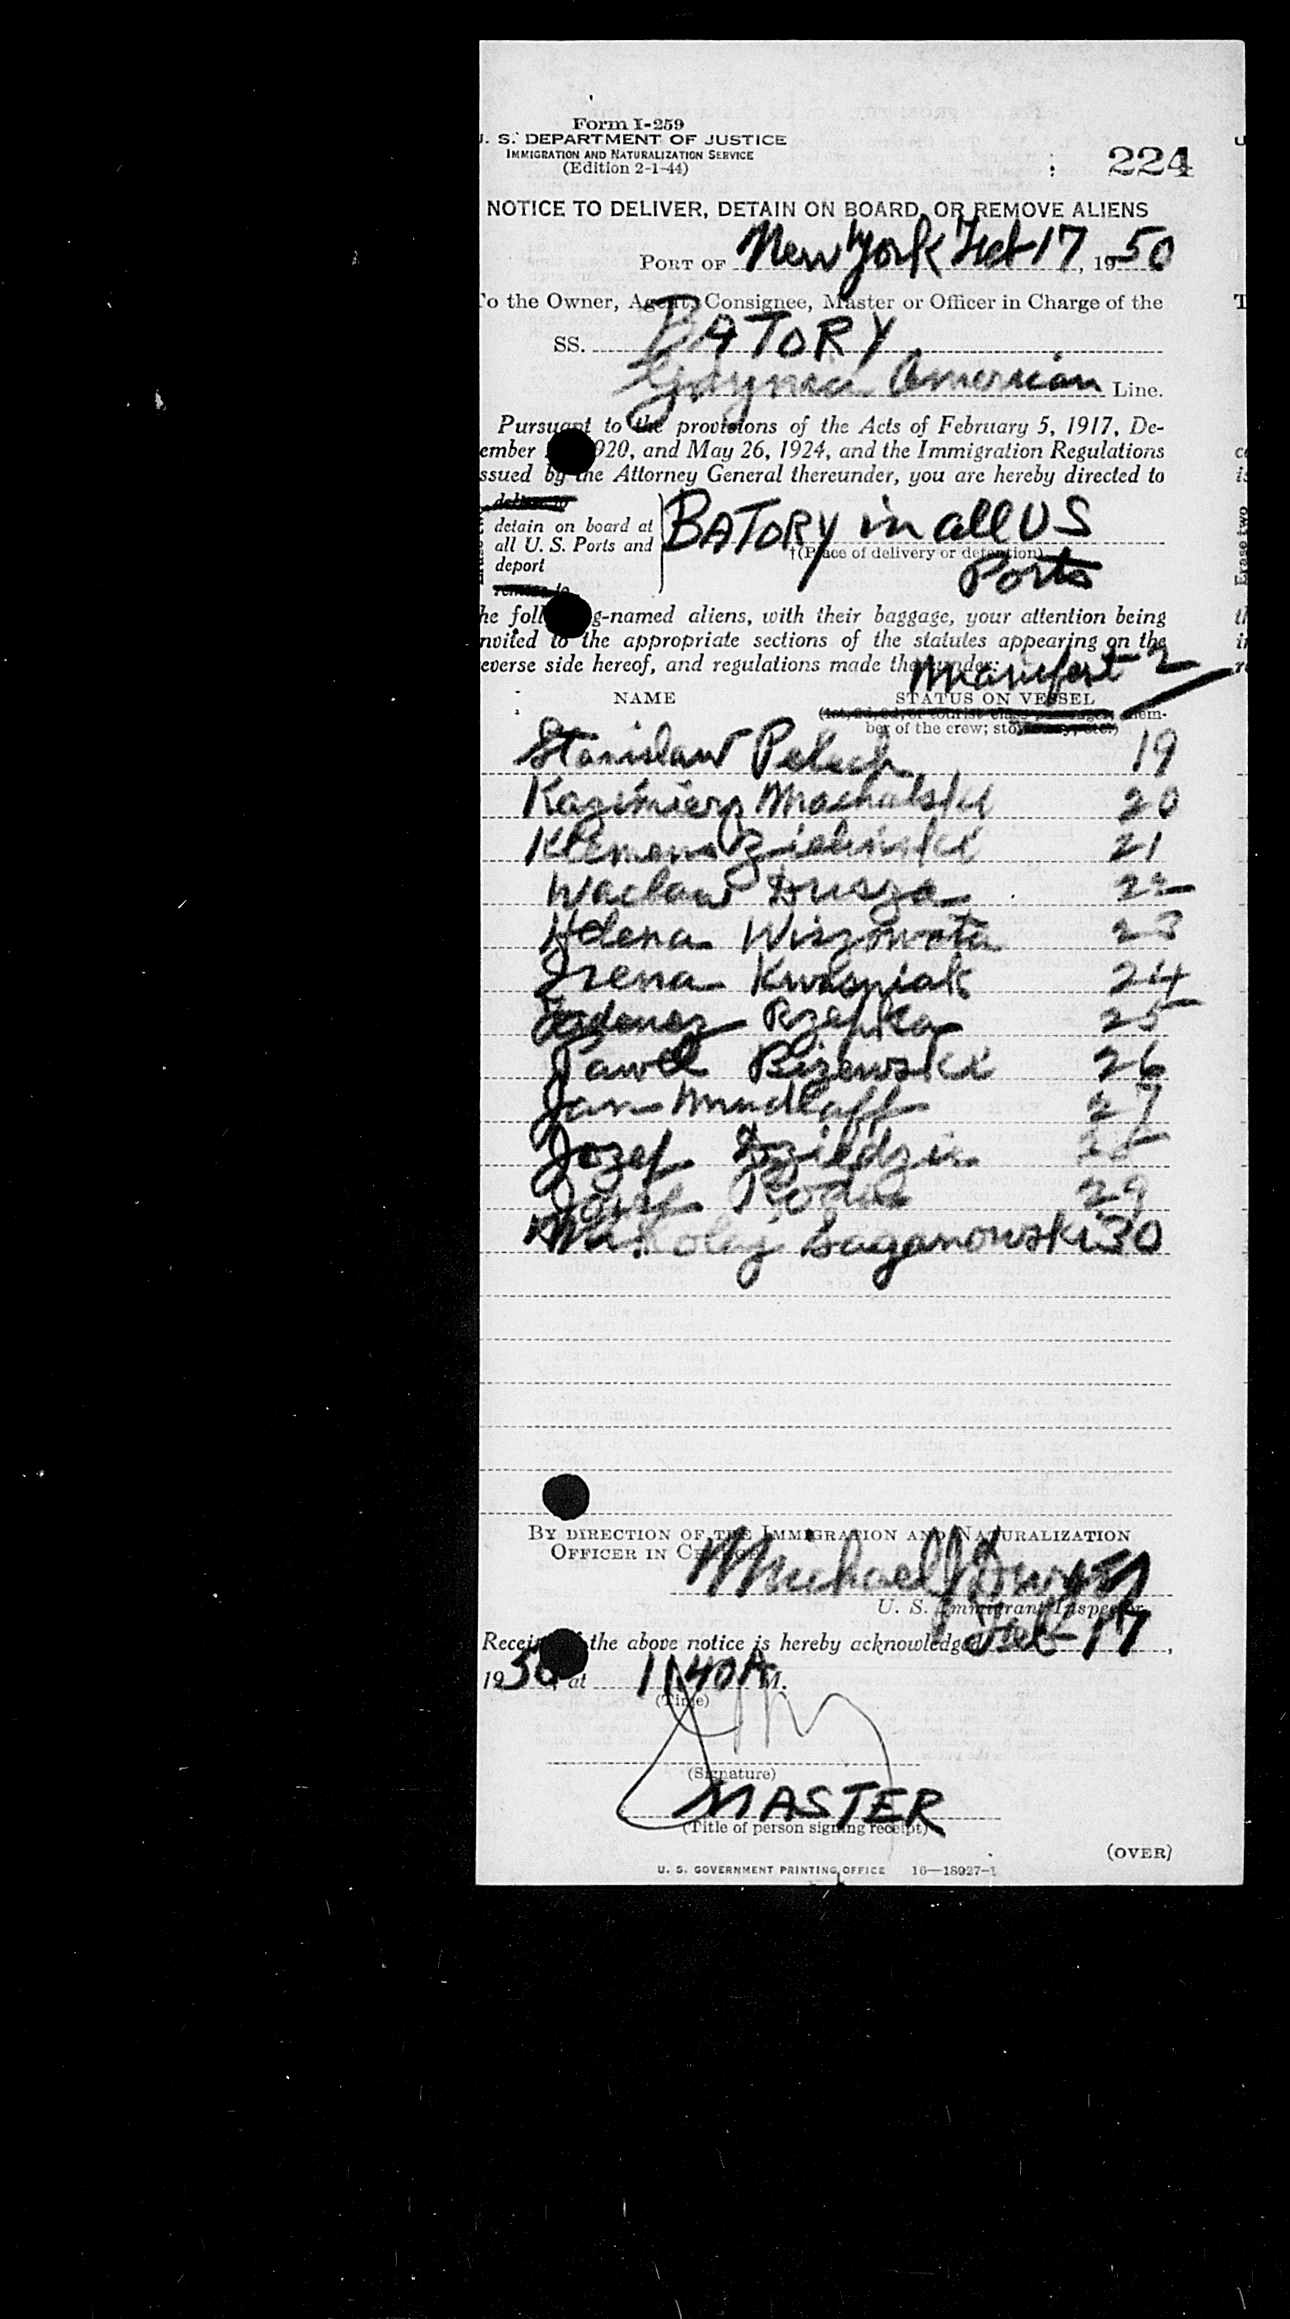 Form I-259
U. S. DEPARTMENT OF JUSTICE
IMMIGRATION AND NATURALIZATION SERVICE
(Edition 2-1-44)
224
NOTICE TO DELIVER, DETAIN ON BOARD, OR REMOVE ALIENS
PORT OF New York Feb 17, 1950
To the Owner, Agent, Consignee, Master or Officer in Charge of the
SS. BATORY
Gdynia American Line.
Pursuant to the provisions of the Acts of February 5, 1917, De-
cember 920, and May 26, 1924, and the Immigration Regulations
issued by the Attorney General thereunder, you are hereby directed to
deliver to
detain on board at
all U. S. Ports and
deport
remove to
BATORY in all US
†(Place of delivery or detention)
Ports
the following-named aliens, with their baggage, your attention being
invited to the appropriate sections of the statutes appearing on the
reverse side hereof, and regulations made thereunder:
Manifest 2
NAME STATUS ON VESSEL
(1st, 2d, 3d, or tourist class passenger; mem-
ber of the crew; stowaway, etc.)
Stanislaw Pelech 19
Kazimierz Machalski 20
Klemens Zielinski 21
Waclaw Dusza 22
Helena Wiszowata 23
Irena Kwasniak 24
Tadeusz Rzepka 25
Pawel Bizewski 26
Jan Mudlaff 27
Jozef Dziedzic 28
Jozef 29
Mikolaj Saganowski 30
BY DIRECTION OF THE IMMIGRATION AND NATURALIZATION
OFFICER IN CHARGE
Michael J
U. S. Immigrant Inspector
Receipt of the above notice is hereby acknowledged Feb 17,
1950, at 11 40 A M.
(Time)
(Signature)
MASTER
(Title of person signing receipt)
(OVER)
U. S. GOVERNMENT PRINTING OFFICE 16—18927-1